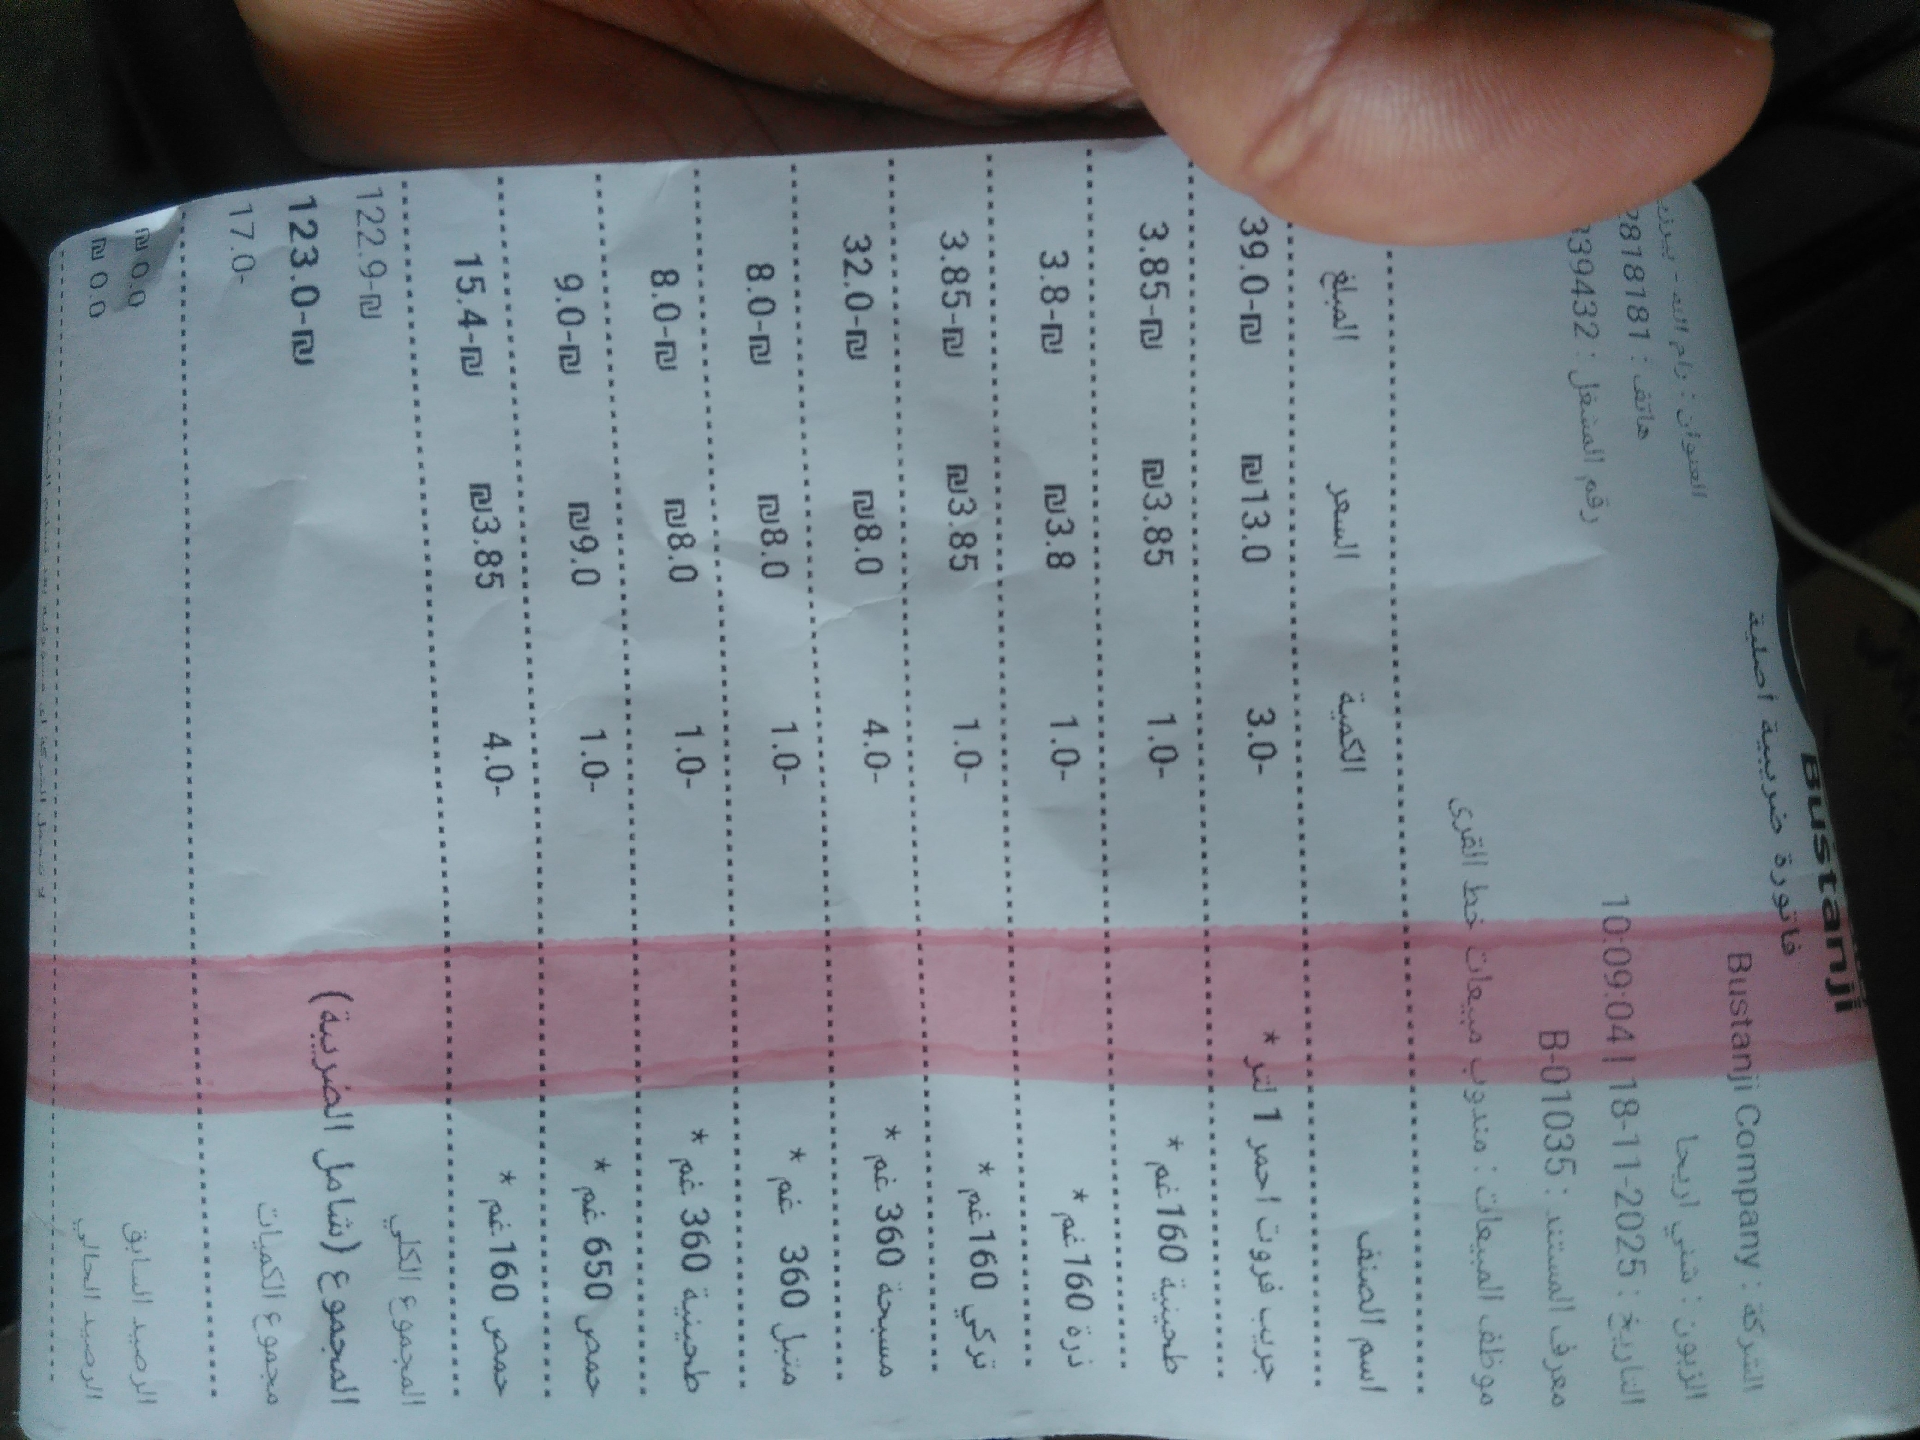 Bustanji
فاتورة ضريبية أصلية
الشركة : Bustanji Company
العنوان : رام الله -
الزبون : شني اريحا
هاتف : 2818181
التاريخ : 18-11-2025 | 10:09:04
رقم المشتغل : 39432
معرف المستند : B-01035
موظف المبيعات : مندوب مبيعات خط القرى
اسم الصنف الكمية السعر المبلغ
جريب فروت احمر 1 لتر * 3.0- ₪13.0 39.0-₪
طحينية 160غم * 1.0- ₪3.85 3.85-₪
ذرة 160غم * 1.0- ₪3.8 3.8-₪
تركي 160غم * 1.0- ₪3.85 3.85-₪
مسبحة 360 غم * 4.0- ₪8.0 32.0-₪
متبل 360 غم * 1.0- ₪8.0 8.0-₪
طحينية 360 غم * 1.0- ₪8.0 8.0-₪
حمص 650 غم * 1.0- ₪9.0 9.0-₪
حمص 160غم * 4.0- ₪3.85 15.4-₪
المجموع الكلي 122.9-₪
المجموع (شامل الضريبة) 123.0-₪
مجموع الكميات 17.0-
الرصيد السابق 0.0 ₪
الرصيد الحالي 0.0 ₪